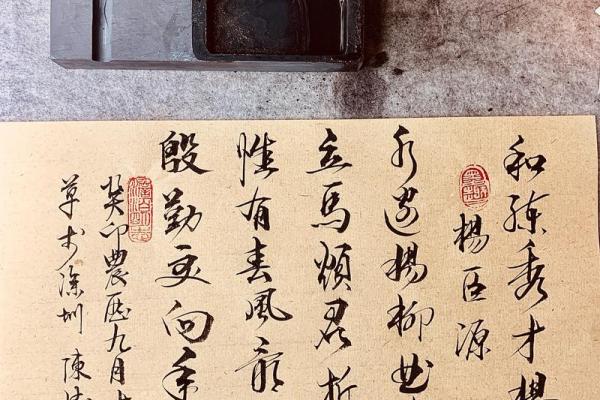 和練秀才楊
楊巨源
水邊楊柳曲
立馬煩君折
惟有春風最
殷勤更向手
癸卯農曆九月
草於深圳 陳